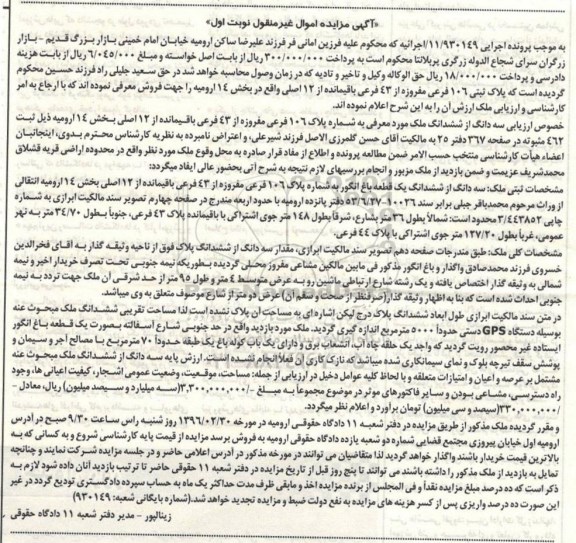 «آگهی مزایده اموال غیرمنقول نوبت اول»
به موجب پرونده اجرایی ۱۱/۹۳۰۱۴۹/اجرائیه که محکوم علیه فرزین امانی فر فرزند علیرضا ساکن ارومیه خیابان امام خمینی بازار بزرگ قدیم - بازار
زرگران سرای شجاع الدوله زرگری پربلانتا محکوم است به پرداخت ۳۰۰/۰۰۰/۰۰۰ ریال از بابت اصل خواسته و مبلغ ۶/۰۴۵/۰۰۰ ریال از بابت هزینه
دادرسی و پرداخت ۱۸/۰۰۰/۰۰۰ ریال حق الوکاله وکیل و تاخیر و تادیه که در زمان وصول محاسبه خواهد شد در حق سعید جلیلی راد فرزند حسین محکوم
گردیده است که پلاک ثبتی ۱۰۶ فرعی مفروزه از ۴۳ فرعی باقیمانده از ۱۲ اصلی واقع در بخش ۱۴ ارومیه را جهت فروش معرفی نموده اند که با ارجاع به امر
کارشناسی و ارزیابی ملک ارزش آن را به این شرح اعلام نموده اند.
خصوص ارزیابی سه دانگ از ششدانگ ملک مورد معرفی به شماره پلاک ۱۰۶ فرعی مفروزه از ۴۳ فرعی باقیمانده از ۱۲ اصلی بخش ۱۴ ارومیه ذیل ثبت
۴۶۲ مثبوته در صفحه ۳۶۷ دفتر ۲۵ به مالکیت آقای حسن گلمرزی الاصل فرزند شیرعلی، و اعتراض نامبرده به نظریه کارشناس محترم بدوی، اینجانبان
اعضاء هیأت کارشناسی منتخب حسب الامر ضمن مطالعه پرونده و اطلاع از مفاد قرار صادره به محل وقوع ملک مورد نظر واقع در محدوده اراضی قریه قشلاق
محمدشریف عزیمت و ضمن بازدید از ملک مزبور و انجام بررسیهای لازم نتیجه به شرح آتی بحضور عالی ایفاد میگردد:
مشخصات ثبتی ملک: سه دانگ از ششدانگ یک قطعه باغ انگور به شماره پلاک ۱۰۶ فرعی مفروزه از ۴۳ فرعی باقیمانده از ۱۲ اصلی بخش ۱۴ ارومیه انتقالی
از وراث مرحوم محمدباقر جبلی برابر سند ۱۰۰۲۶-۵۳/۶/۲۷ دفتر پانزده ارومیه با حدود اربعه مندرج در صفحه چهارم تصویر سند مالکیت ابرازی به شماره
چاپی ۳/۴۴۳۸۵۲ محدود است: شمالاً بطول ۳۶ متر بشارع، شرقاً بطول ۱۴۸ متر جوی اشتراکی با باقیمانده پلاک ۴۳ فرعی، جنوباً بطول ۳۴/۷۰ متر به نهر
عمومی، غرباً بطول ۱۲۷/۲۰ متر جوی اشتراکی با پلاک ۴۴ فرعی.
مشخصات کلی ملک: طبق مندرجات صفحه دهم تصویر سند مالکیت ابرازی، مقدار سه دانگ از ششدانگ پلاک فوق از ناحیه وثیقه گذار به آقای فخرالدین
خسروی فرزند محمدصادق واگذار و باغ انگور مذکور فی مابین مالکین مشاعی مفروز محلی گردیده بطوریکه نیمه جنوبی تحت تصرف خریدار اخیر و نیمه
شمالی به وثیقه گذار اختصاص یافته و یک رشته شارع ارتباطی ماشین رو به عرض متوسط ۴ متر و طول ۹۵ متر از حد شرقی آن ملک جهت تردد به نیمه
جنوبی احداث شده است که بنا به اظهار وثیقه گذار(صرفنظر از صحت و سقم آن) عرض دو متر از شارع موصوف متعلق به وی میباشد.
در متن سند مالکیت ابرازی طول ابعاد ششدانگ پلاک درج لیکن اشاره ای به مساحت آن پلاک نشده است لذا مساحت تقریبی ششدانگ ملک مبحوث عنه
بوسیله دستگاه GPS دستی حدوداً ۵۰۰۰ مترمربع اندازه گیری گردید. ملک مورد بازدید واقع در حد جنوبی شارع آسفالته بصورت یک قطعه باغ انگور
ایستاده غیر محصور رویت گردید که واجد یک حلقه چاه آب، انشعاب برق و دارای یک باب کوله باغ یک طبقه حدوداً ۷۰ مترمربع با مصالح آجر و سیمان و
پوشش سقف تیرچه بلوک و نمای سیمانکاری شده میباشد که نازک کاری آن فعلاً انجام نشده است. ارزش پایه سه دانگ از ششدانگ ملک مبحوث عنه
مشتمل بر عرصه و اعیان و امتیازات متعلقه و با لحاظ کلیه عوامل دخیل در ارزیابی از جمله: مساحت، موقعیت، وضعیت عمومی اشجار، کیفیت اعیانی ها، وجود
راه دسترسی، مشاعی بودن و سایر فاکتورهای موثر در موضوع مجموعاً به مبلغ ۳,۳۰۰,۰۰۰,۰۰۰/-(سه میلیارد و سیصد میلیون) ریال، معادل -
۳۳۰,۰۰۰,۰۰۰/(سیصد و سی میلیون) تومان برآورد و اعلام نظر میگردد.
و مقرر گردیده ملک مذکور از طریق مزایده در دفتر شعبه ۱۱ دادگاه حقوقی ارومیه در مورخه ۱۳۹۶/۰۲/۳۰ روز شنبه راس ساعت ۹/۳۰ صبح در آدرس
ارومیه اول خیابان پیروزی مجتمع قضایی شماره دو شعبه یازده دادگاه حقوقی ارومیه به فروش برسد مزایده از قیمت پایه کارشناسی شروع و به کسانی که به
بالاترین قیمت خریدار باشند واگذار خواهد گردید لذا متقاضیان می توانند در مورخه مذکور در آدرس اعلامی حاضر و در جلسه مزایده شرکت نمایند و چنانچه
تمایل به بازدید از ملک مذکور را داشته باشند می توانند تا پنج روز قبل از تاریخ مزایده در دفتر شعبه ۱۱ حقوقی حاضر تا ترتیب بازدید آنان داده شود لازم به
ذکر است که ده درصد مبلغ مزایده نقداً و فی المجلس از برنده مزایده اخذ و مابقی ظرف مدت حداکثر یک ماه به حساب سپرده دادگستری تودیع گردد در غیر
این صورت ده درصد واریزی پس از کسر هزینه های مزایده به نفع دولت ضبط و مزایده تجدید خواهد شد.(شماره بایگانی شعبه: ۹۳۰۱۴۹)
زینالپور - مدیر دفتر شعبه ۱۱ دادگاه حقوقی